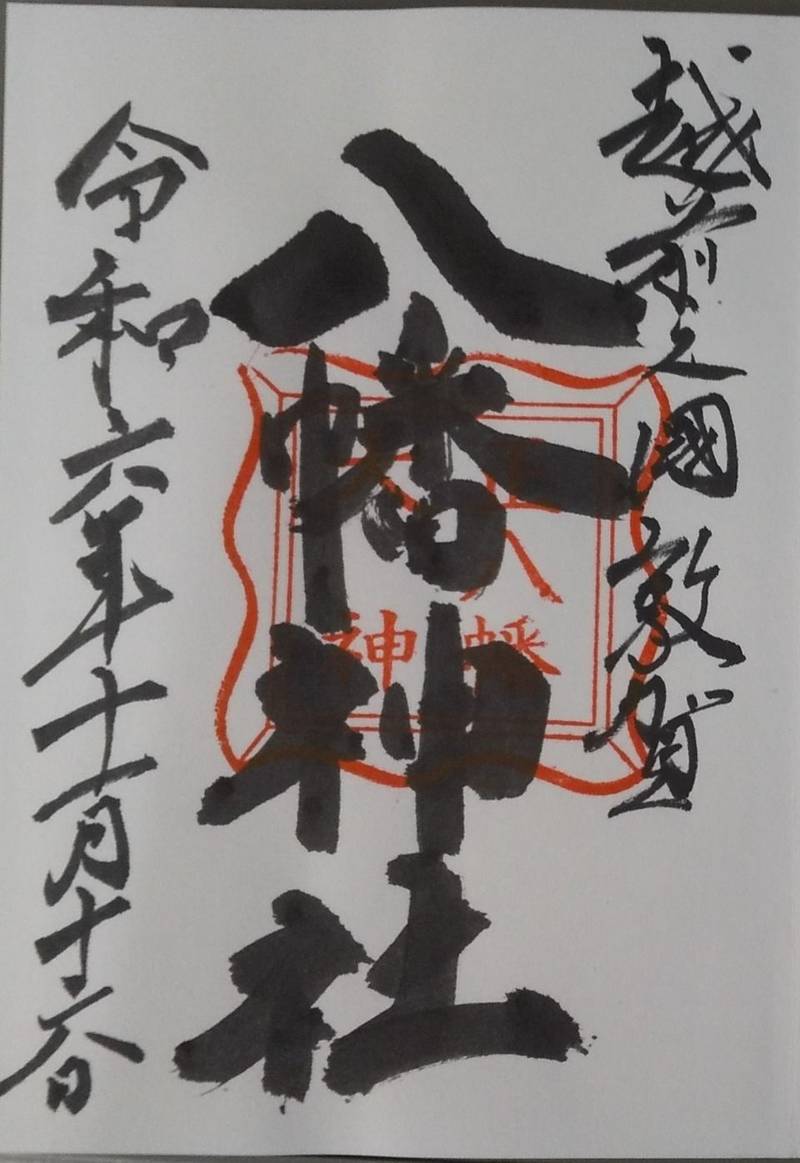 越前之國敦賀
八幡神社
正八幡
大神
令和六年十一月十六日